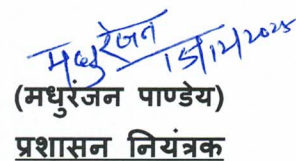 मधुरंजन
15/12/2025
(मधुरंजन पाण्डेय)
प्रशासन नियंत्रक